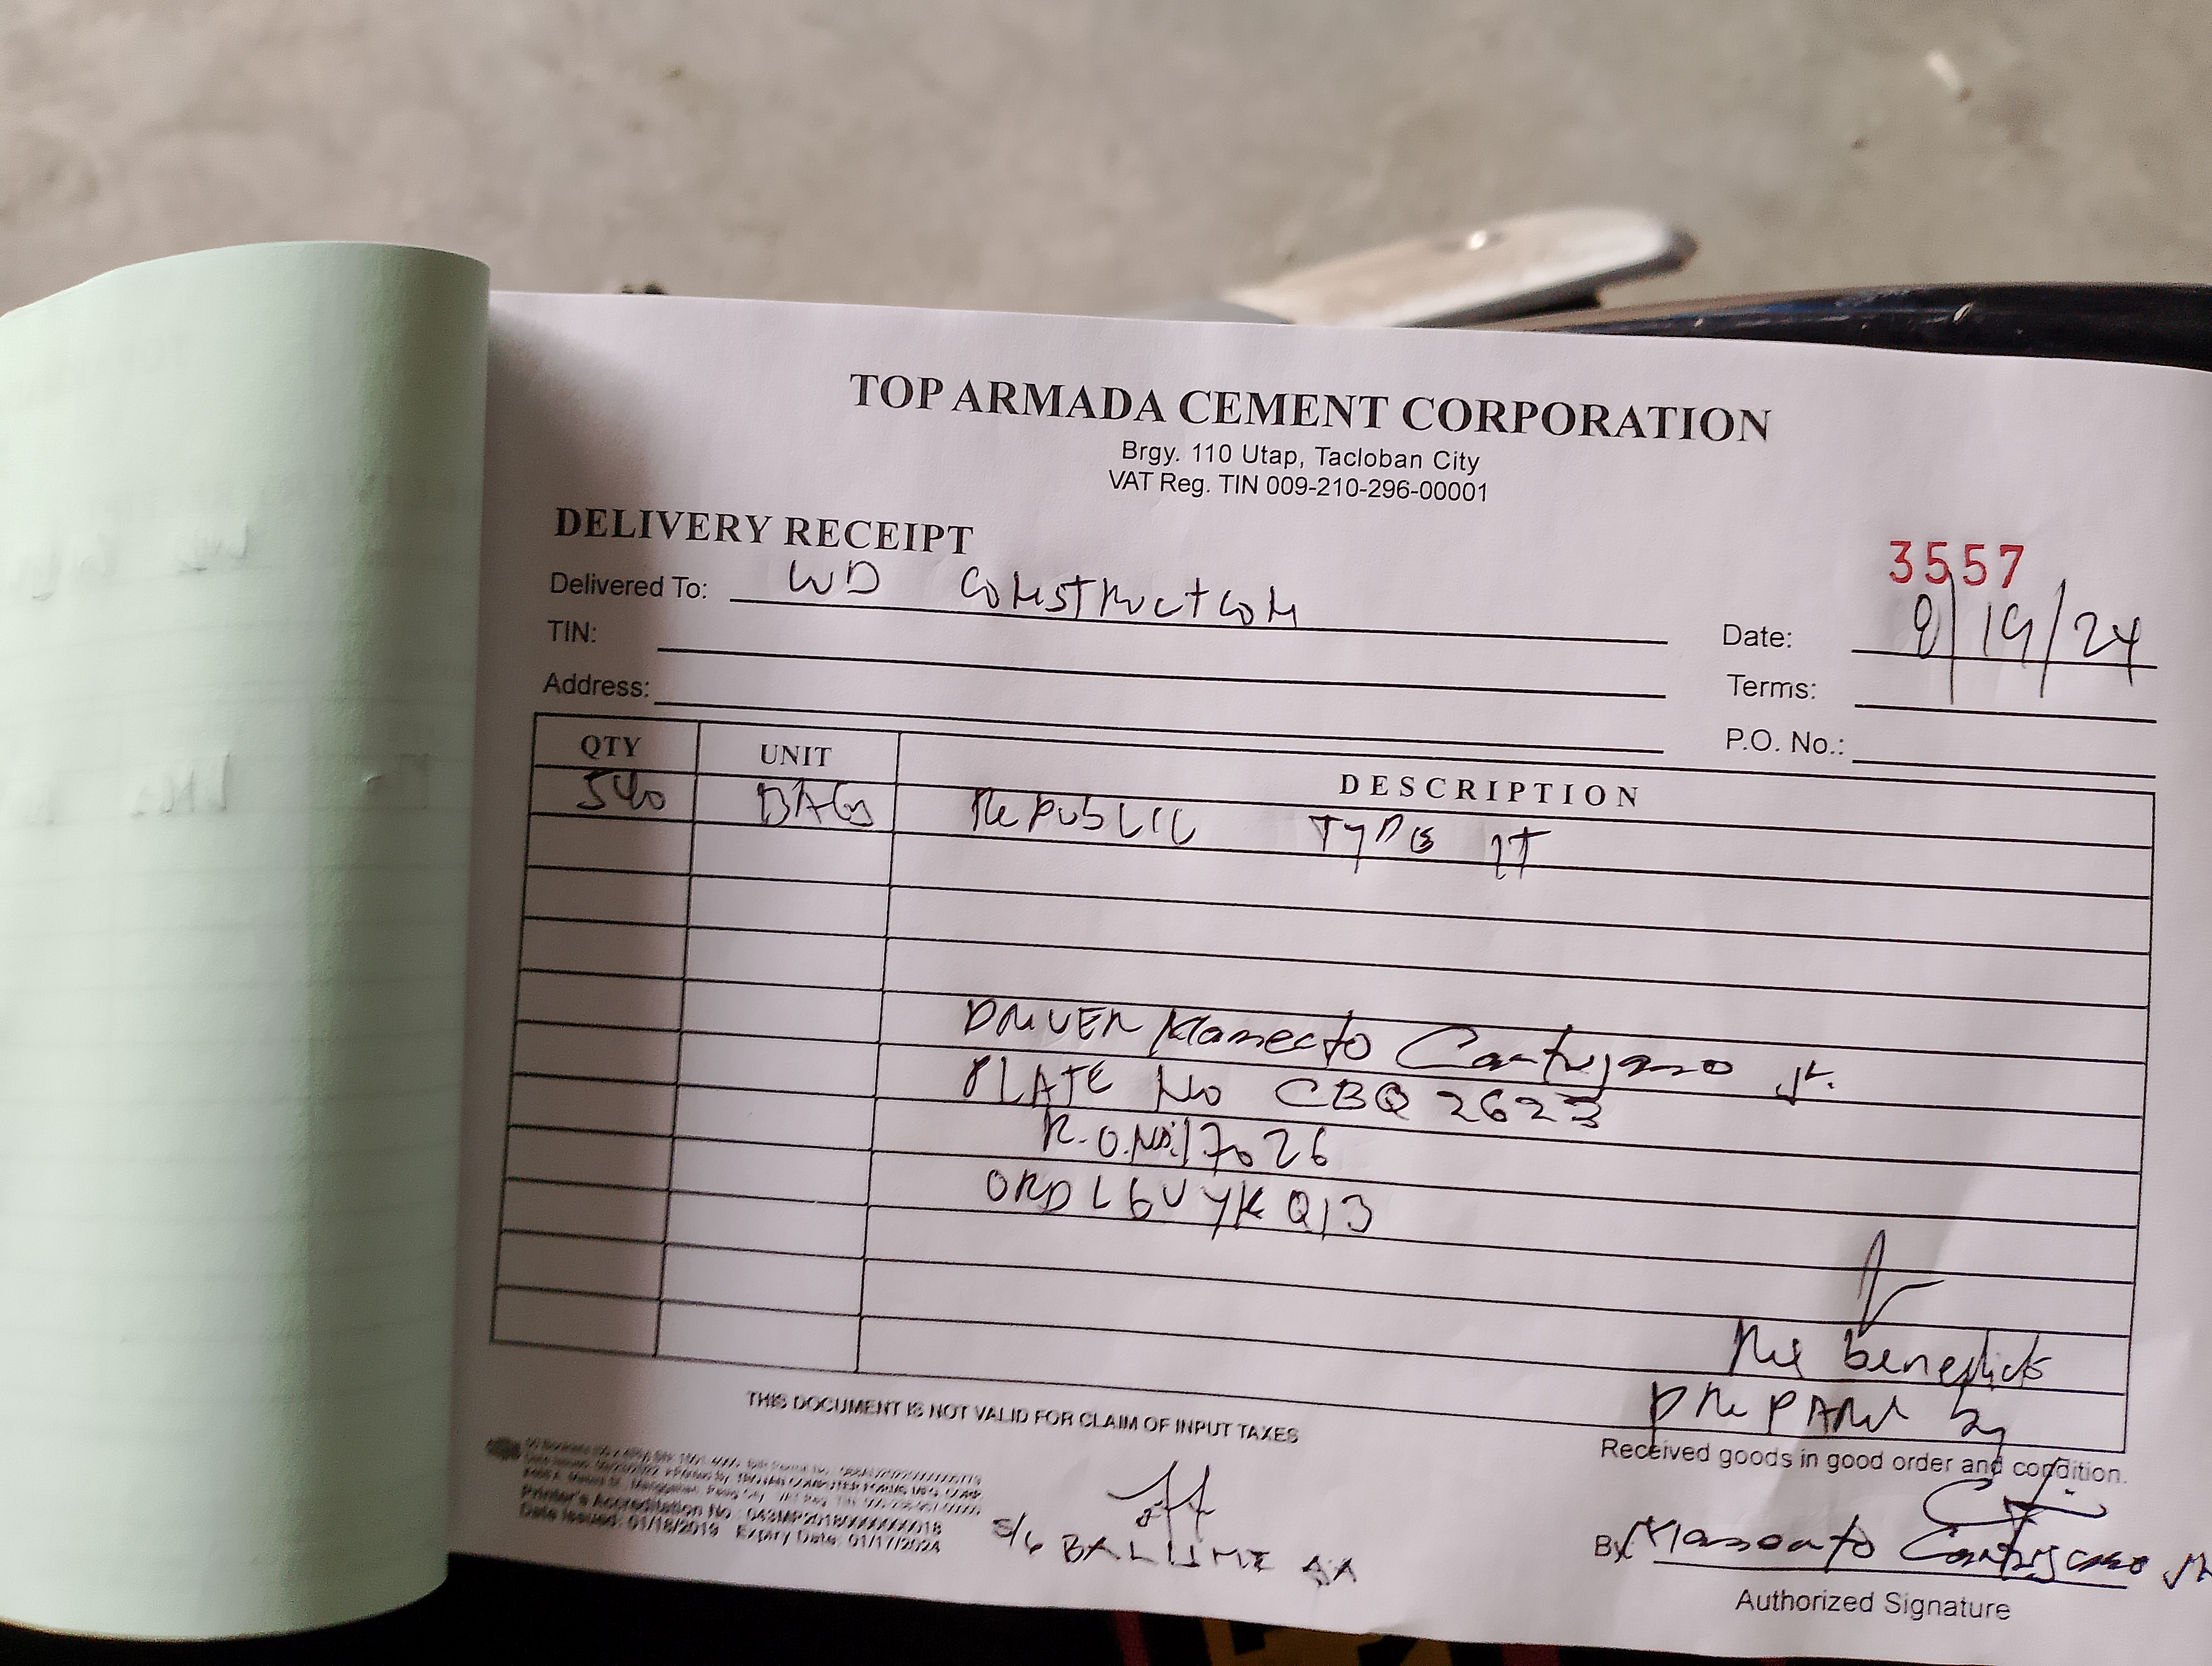 TOP ARMADA CEMENT CORPORATION
Brgy. 110 Utap, Tacloban City
VAT Reg. TIN 009-210-296-00001
DELIVERY RECEIPT
3557
Delivered To: WD CONSTRUCTION
Date: 8/19/24
TIN:
Terms:
Address:
P.O. No.:
QTY UNIT DESCRIPTION
540 BAGS REPUBLIC TYPE 1T
DRIVER Jr.
PLATE No CBQ 2623
R.O. No. 17026
ORDL6UYKQ13
benedicto
PREPARED by
THIS DOCUMENT IS NOT VALID FOR CLAIM OF INPUT TAXES
Received goods in good order and condition.
Printer's Accreditation No.: 043MP20180000000018
Date Issued: 01/18/2019 Expiry Date: 01/17/2024
S/G
By: Jr
Authorized Signature